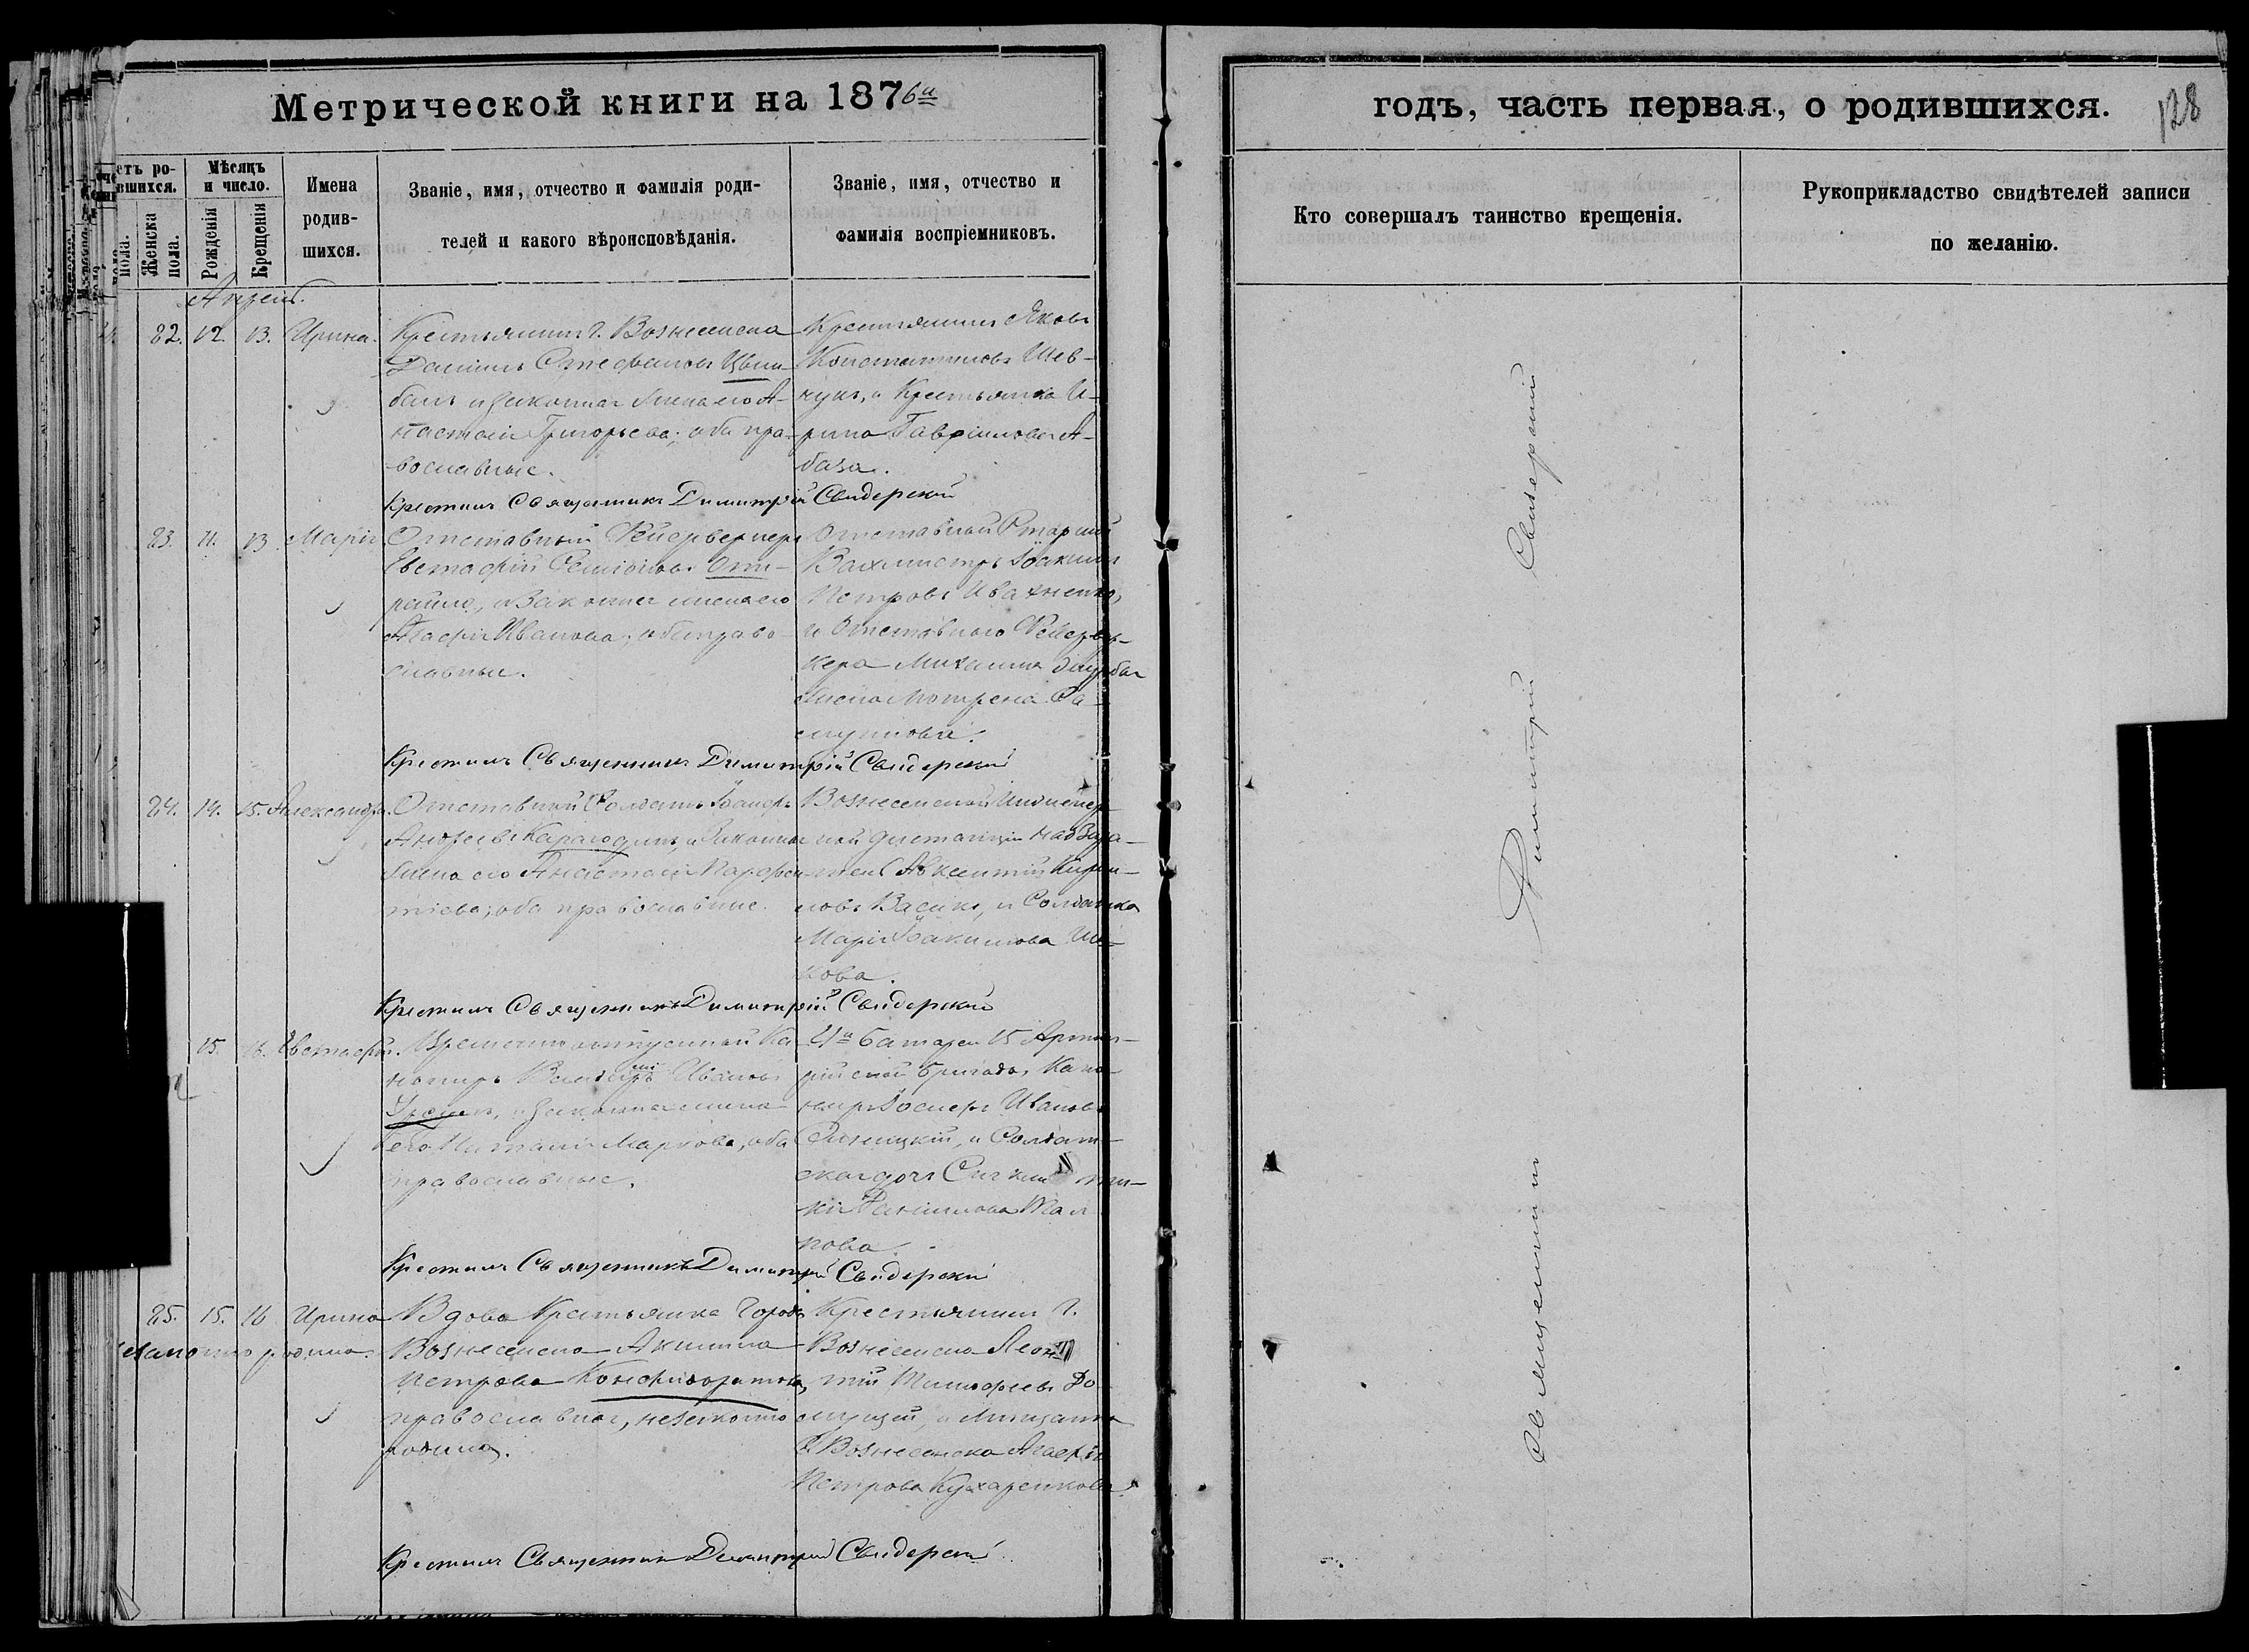 Метрической книги на 1876й
годъ, часть первая, о родившихся.
128
етъ ро-
вшихся.
Мѣсяцъ
и число.
Имена
родив-
шихся.
Званіе, имя, отчество и фамилія роди-
телей и какого вѣроисповѣданія.
Званіе, имя, отчество и
фамилія воспріемниковъ.
пола.
Женска
пола.
Рожденія
Крещенія
Кто совершалъ таинство крещенія.
Рукоприкладство свидѣтелей записи
по желанію.
Апрель.
82. 12. 13. Ирина.
Крестьянинъ г. Вознесенска
Даніилъ Стефановъ
и законная жена его А-
настасія Григорьева; оба пра-
вославные.
Крестьянинъ Яковъ
Константиновъ Шев-
чукъ, и Крестьянка И-
рина Гавріилова А-
база.
Крестилъ Священникъ Димитрій Свидерскій
83. 11. 13. Марія
Отставный Фейерверкеръ
Евстафій
и законная жена его
Агафія Иванова; оба право-
славные.
Отставный Старшій
Вахмистръ Іоакимъ
Петровъ Ивахненко,
и Отставного Фейервер-
кера Михаила
жена Мотрена Са-
муилова.
Крестилъ Священникъ Димитрій Свидерскій
84. 14. 15. Александра.
Отставный Солдатъ
Андреевъ Карагодинъ, и Законная
жена его Анастасія Парфен-
тіева; оба православные.
Вознесенской Инженер-
ной дистанціи надзира-
тель Авксентій Кирил-
ловъ Васикъ, и Солдатка
Марія Іоакимова
кова.
Крестилъ Священникъ Димитрій Свидерскій
15. 16. Евстафій.
Временно отпускной Ка-
ниръ Иванов
и законная жена
его Наталія Маркова, оба
православные.
4й батареи 15 Артил-
рійской бригады, Кано-
ниръ Іосифъ Ивановъ
и Солдат-
ская дочь
Даніилова
кова.
Крестилъ Священникъ Димитрій Свидерскій
85. 15. 16 Ирина
незаконно родила.
Вдова Крестьянка Города
Вознесенска Акилина
Петрова
православная, незаконно
родила.
Крестьянинъ г.
Вознесенска Леон-
тій Тимофеевъ До-
и Мещанка
г. Вознесенска Агафія
Петрова Кухаренкова
Крестилъ Священникъ Димитрій Свидерскій
Священникъ Димитрій Свидерскій